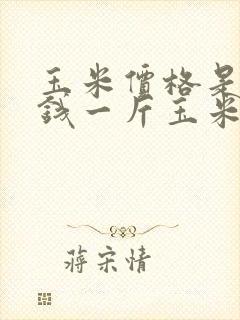 玉米價格是
錢一斤玉米
蔣宋情